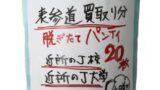 表参道 買取り分
脱ぎたて パンティ
20枚
近所のJ校
近所のJ大学